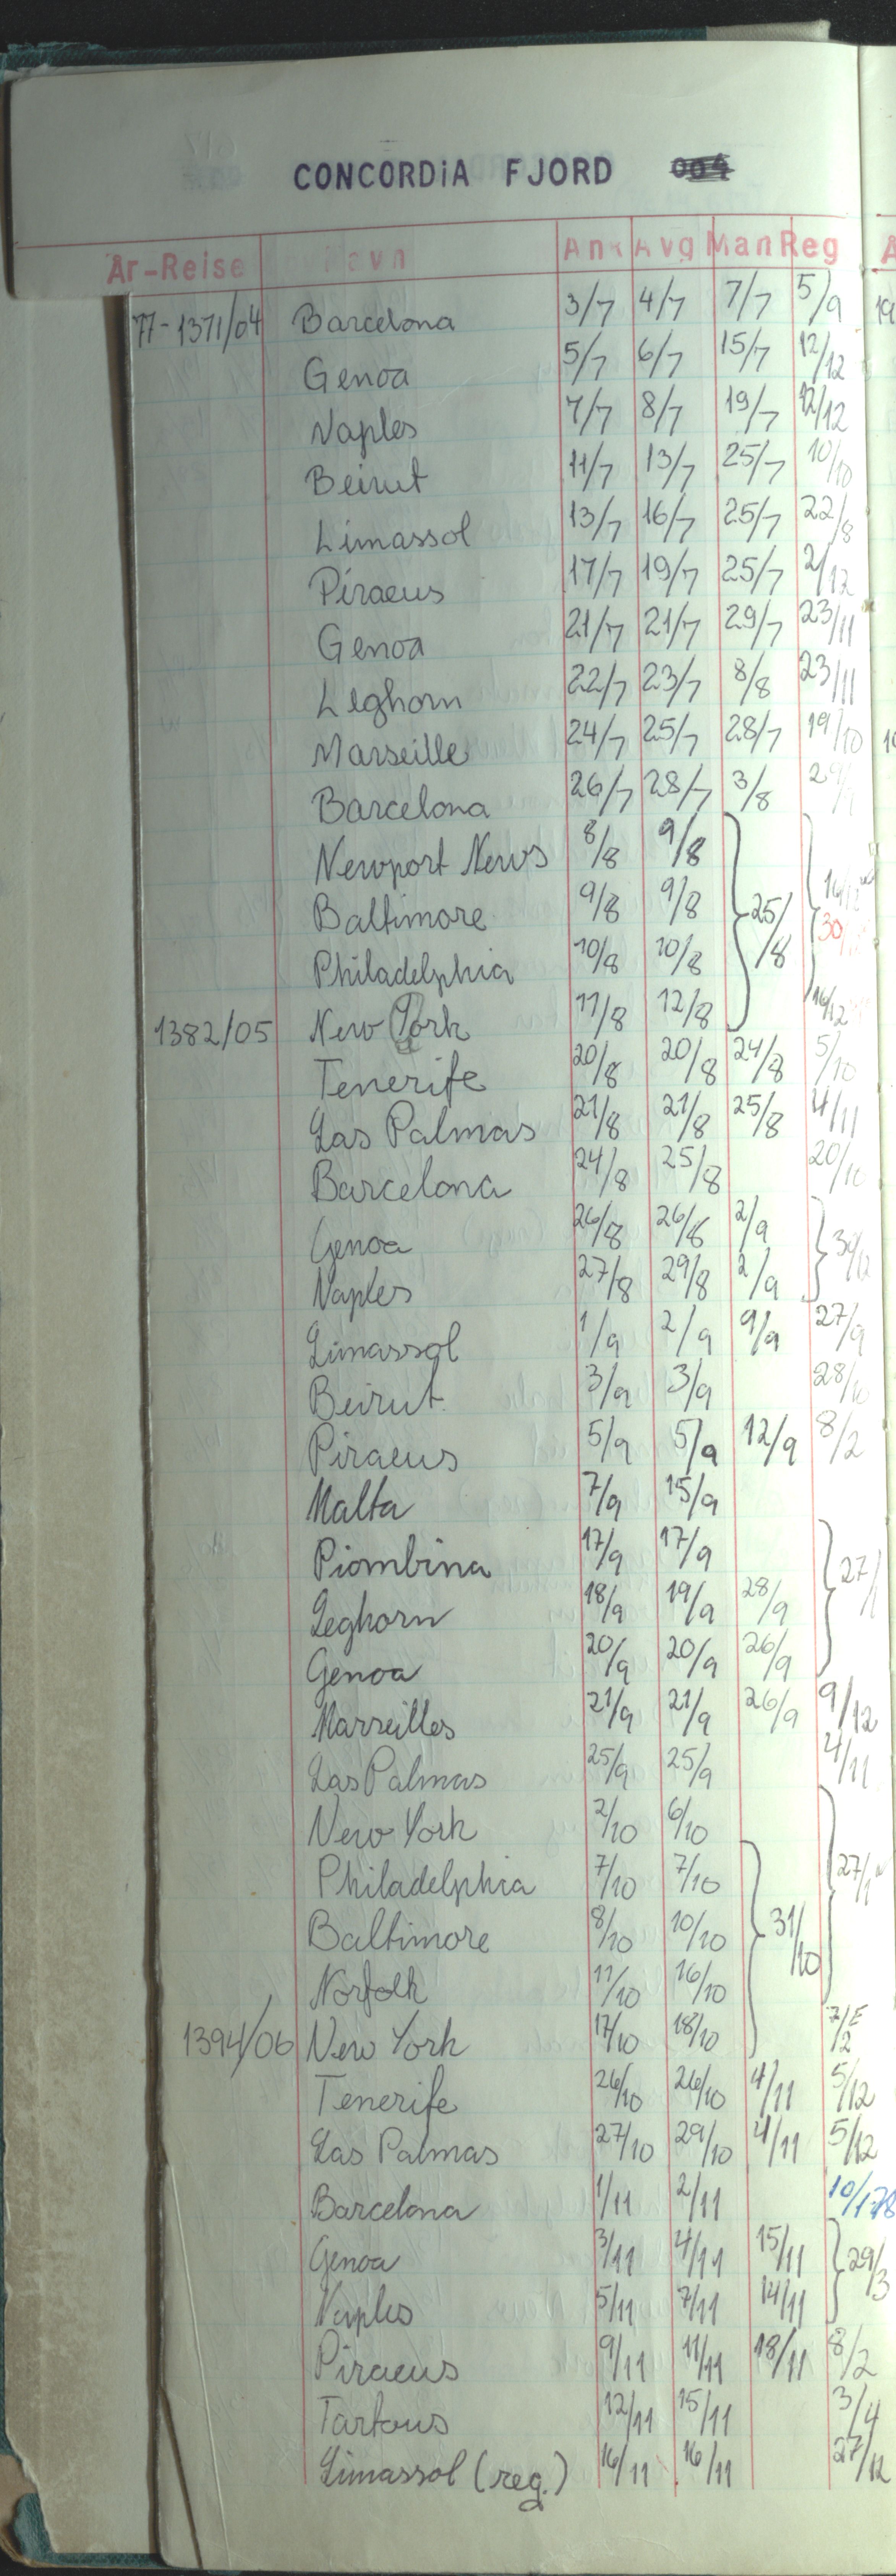 CONCORDiA FJORD 004
År-Reise Navn Ank Avg Man Reg
77-1371/04 Barcelona 3/7 4/7 7/7 5/9
Genoa 5/7 6/7 15/7 12/12
Naples 7/7 8/7 19/7 12/12
Beirut 11/7 13/7 25/7 10/10
Limassol 13/7 16/7 25/7 22/8
Piraeus 17/7 19/7 25/7 2/12
Genoa 21/7 21/7 29/7 23/11
Leghorn 22/7 23/7 8/8 23/11
Marseille 24/7 25/7 28/7 19/10
Barcelona 26/7 28/7 3/8
Newport News 8/8 9/8
Baltimore 9/8 9/8 25/8
Philadelphia 10/8 10/8
1382/05 New York 11/8 12/8 16/12
Tenerife 20/8 20/8 24/8 5/10
Las Palmas 21/8 21/8 25/8 4/11
Barcelona 24/8 25/8 20/10
Genoa 26/8 26/8 2/9
Naples 27/8 29/8 2/9
Limassol 1/9 2/9 9/9 27/9
Beirut 3/9 3/9 28/10
Piraeus 5/9 5/9 12/9 8/2
Malta 7/9 15/9
Piombina 17/9 17/9
Leghorn 18/9 19/9 28/9 27/1
Genoa 20/9 20/9 26/9
Marseilles 21/9 21/9 26/9 9/12
Las Palmas 25/9 25/9 4/11
New York 2/10 6/10
Philadelphia 7/10 7/10 27/1
Baltimore 8/10 10/10 31/10
Norfolk 11/10 16/10
1394/06 New York 17/10 18/10 7/2
Tenerife 26/10 26/10 4/11 5/12
Las Palmas 27/10 29/10 4/11 5/12
Barcelona 1/11 2/11 10/1-78
Genoa 3/11 4/11 15/11 29/3
Naples 5/11 7/11 14/11
Piraeus 9/11 11/11 18/11 8/2
Tartous 12/11 15/11 3/4
Limassol (reg.) 16/11 16/11 27/12